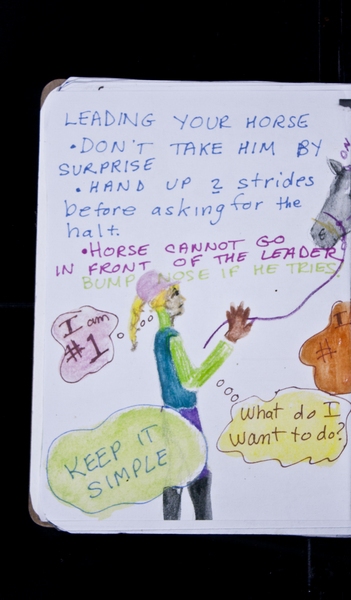 LEADING YOUR HORSE
• DON'T TAKE HIM BY
SURPRISE
• HAND UP 2 strides
before asking for the
halt.
• HORSE CANNOT GO
IN FRONT OF THE LEADER
BUMP NOSE IF HE TRIES
ON
I am
#1
#1
What do I
want to do?
KEEP IT
SIMPLE